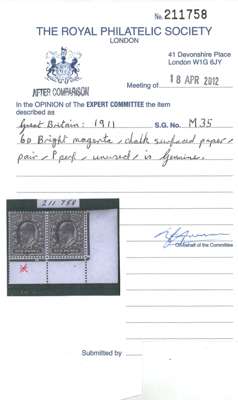 No. 211758
THE ROYAL PHILATELIC SOCIETY
LONDON
41 Devonshire Place
London W1G 6JY
AFTER COMPARISON
Meeting of 18 APR 2012
In the OPINION of The EXPERT COMMITTEE the item
described as
Great Britain: 1911 S.G. No. M35
6D Bright magenta, chalk surfaced paper,
pair, unused, is Genuine.
On behalf of the Committee
211 758
Submitted by